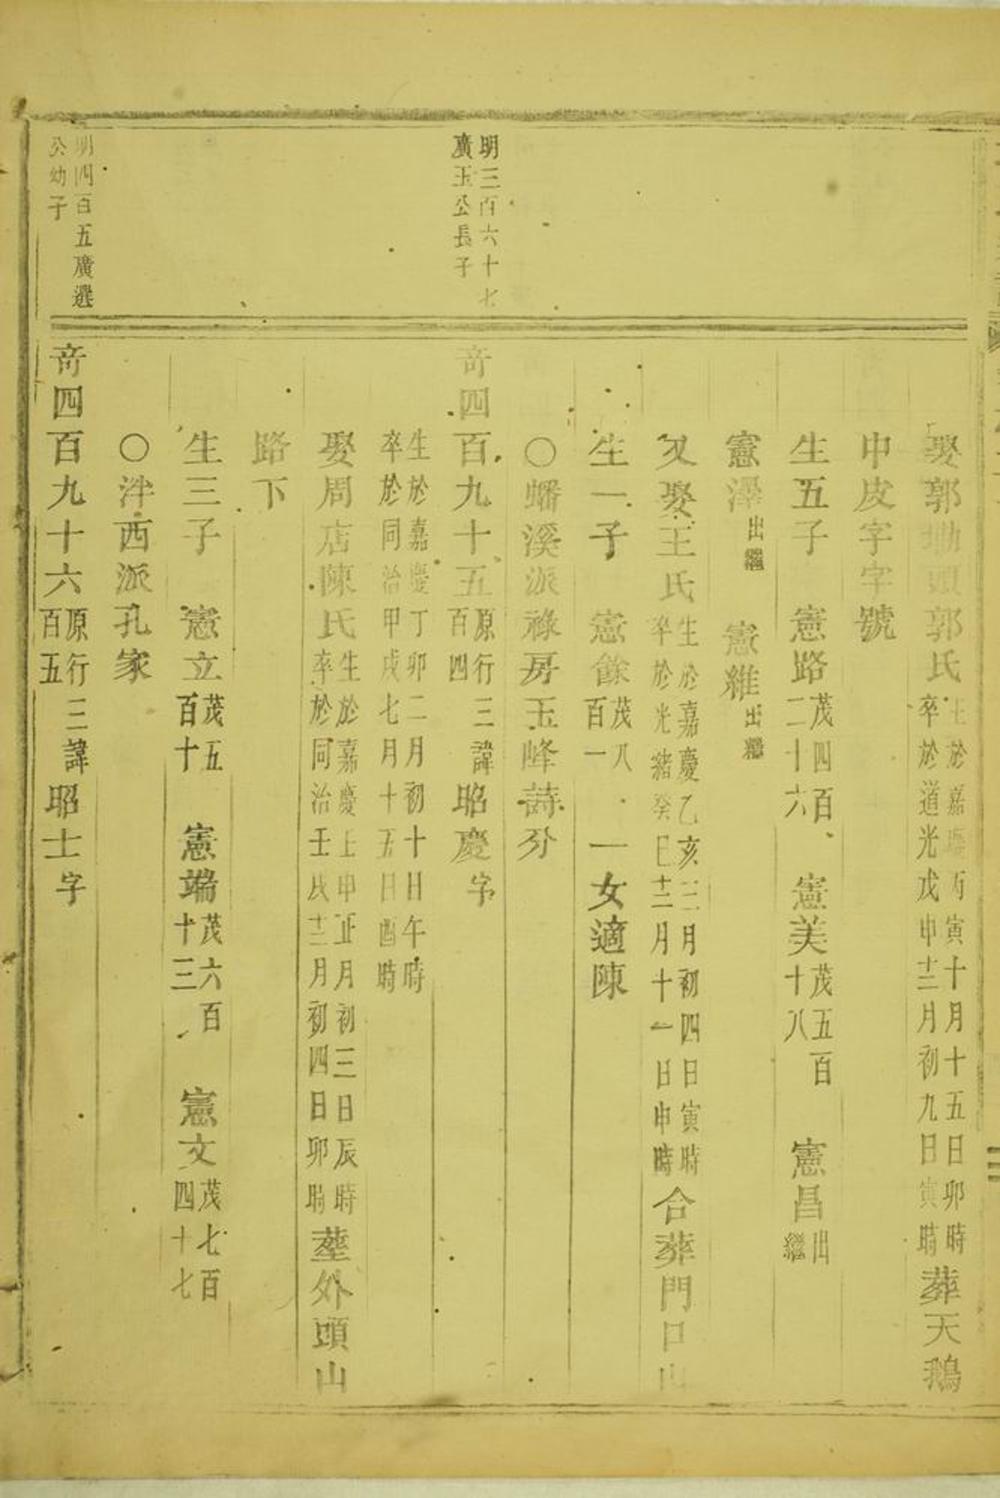 娶郭坳頭郭氏生於嘉慶丙寅十月十五日卯時卒於道光戊申十二月初九日寅時葬天鵝
中皮字字號
生五子 憲路茂四百二十六 憲美茂五百十八 憲昌出繼
憲澤出繼 憲雒出繼
又娶王氏生於嘉慶乙亥十二月初四日寅時卒於光緒癸巳十二月十一日申時合葬門口山
生一子 憲餘茂八百一 一女適陳
○蟠溪派祿房玉峰講分
明三百六十七
廣玉公長子
奇四百九十五原行三百四諱昭慶字
生於嘉慶丁卯二月初十日午時
卒於同治甲戌七月十五日酉時
娶周店陳氏生於嘉慶上甲正月初三日辰時卒於同治壬戌十二月初四日卯時葬外頭山
路下
生三子 憲立茂五百十 憲端茂六百十三 憲文茂七百四十七
○泮西派孔家
明四百五廣選
公幼子
奇四百九十六原行三百五諱昭士字